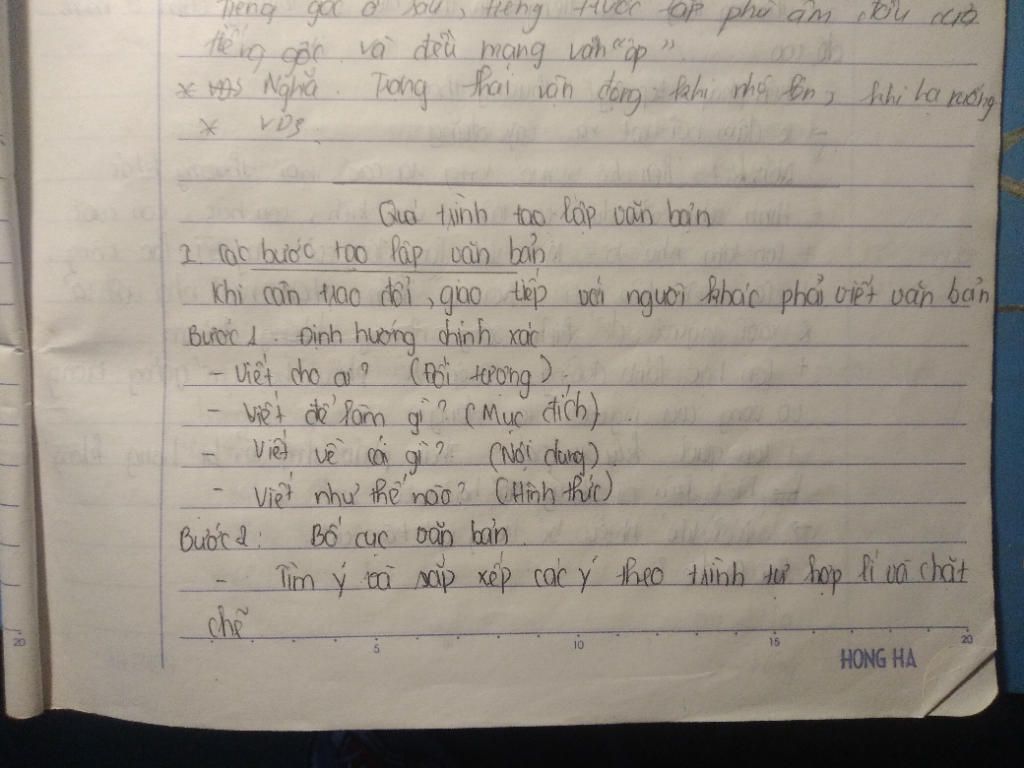 Tiếng gốc ở sau, tiếng trước lặp phụ âm đầu của
tiếng gốc và đều mang vần "ấp"
* Nghĩa. Trạng thái vận động khi nhô lên, khi hạ xuống
* VD3
Quá trình tạo lập văn bản
I. Các bước tạo lập văn bản
Khi cần trao đổi, giao tiếp với người khác phải viết văn bản
Bước 1. Định hướng chính xác
- Viết cho ai? (Đối tượng)
- Viết để làm gì? (Mục đích)
- Viết về cái gì? (Nội dung)
- Viết như thế nào? (Hình thức)
Bước 2: Bố cục văn bản
- Tìm ý và sắp xếp các ý theo trình tự hợp lí và chặt
chẽ
20 5 10 15 20
HONG HA